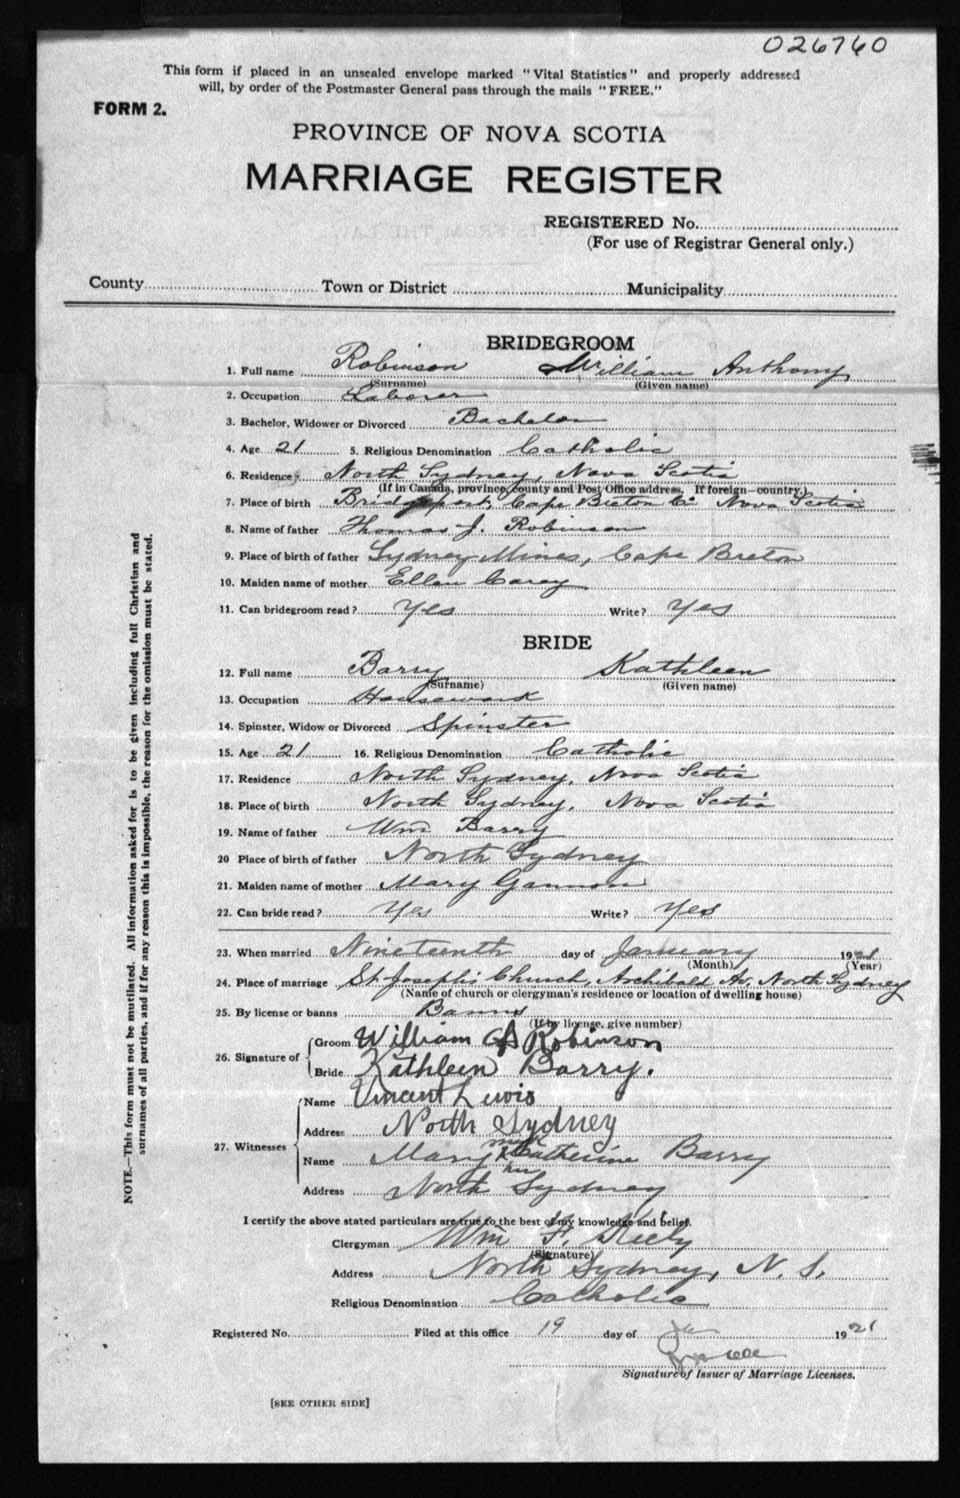 026760
This form if placed in an unsealed envelope marked "Vital Statistics" and properly addressed
will, by order of the Postmaster General pass through the mails "FREE."
FORM 2.
PROVINCE OF NOVA SCOTIA
MARRIAGE REGISTER
REGISTERED No.
(For use of Registrar General only.)
County Town or District Municipality
BRIDEGROOM
1. Full name Robinson William Anthony
(Surname) (Given name)
2. Occupation Laborer
3. Bachelor, Widower or Divorced Bachelor
4. Age 21 5. Religious Denomination Catholic
6. Residence North Sydney, Nova Scotia
(If in Canada, province, county and Post Office address. If foreign—country.)
7. Place of birth Bridgeport, Cape Breton Co. Nova Scotia
8. Name of father Thomas J. Robinson
9. Place of birth of father Sydney Mines, Cape Breton
10. Maiden name of mother Ellen Carey
11. Can bridegroom read? Yes Write? Yes
BRIDE
12. Full name Barry Kathleen
(Surname) (Given name)
13. Occupation Housework
14. Spinster, Widow or Divorced Spinster
15. Age 21 16. Religious Denomination Catholic
17. Residence North Sydney, Nova Scotia
18. Place of birth North Sydney, Nova Scotia
19. Name of father Wm Barry
20 Place of birth of father North Sydney
21. Maiden name of mother Mary Gannon
22. Can bride read? Yes Write? Yes
23. When married Nineteenth day of January 19
(Month) (Year)
24. Place of marriage St. Joseph's Church, Archibald Av, North Sydney
(Name of church or clergyman's residence or location of dwelling house)
25. By license or banns Banns
(If by license, give number)
26. Signature of Groom William A Robinson
Bride Kathleen Barry.
27. Witnesses Name Vincent Lewis
Address North Sydney
mark
Name Mary X Catherine Barry
her
Address North Sydney
I certify the above stated particulars are true to the best of my knowledge and belief.
Clergyman Wm F. Kiely
(Signature)
Address North Sydney, N. S.
Religious Denomination Catholic
Registered No. Filed at this office 19 day of Ja 1921
Signature of Issuer of Marriage Licenses.
[SEE OTHER SIDE]
NOTE.—This form must not be mutilated. All information asked for is to be given including full Christian and
surnames of all parties, and if for any reason this is impossible, the reason for the omission must be stated.